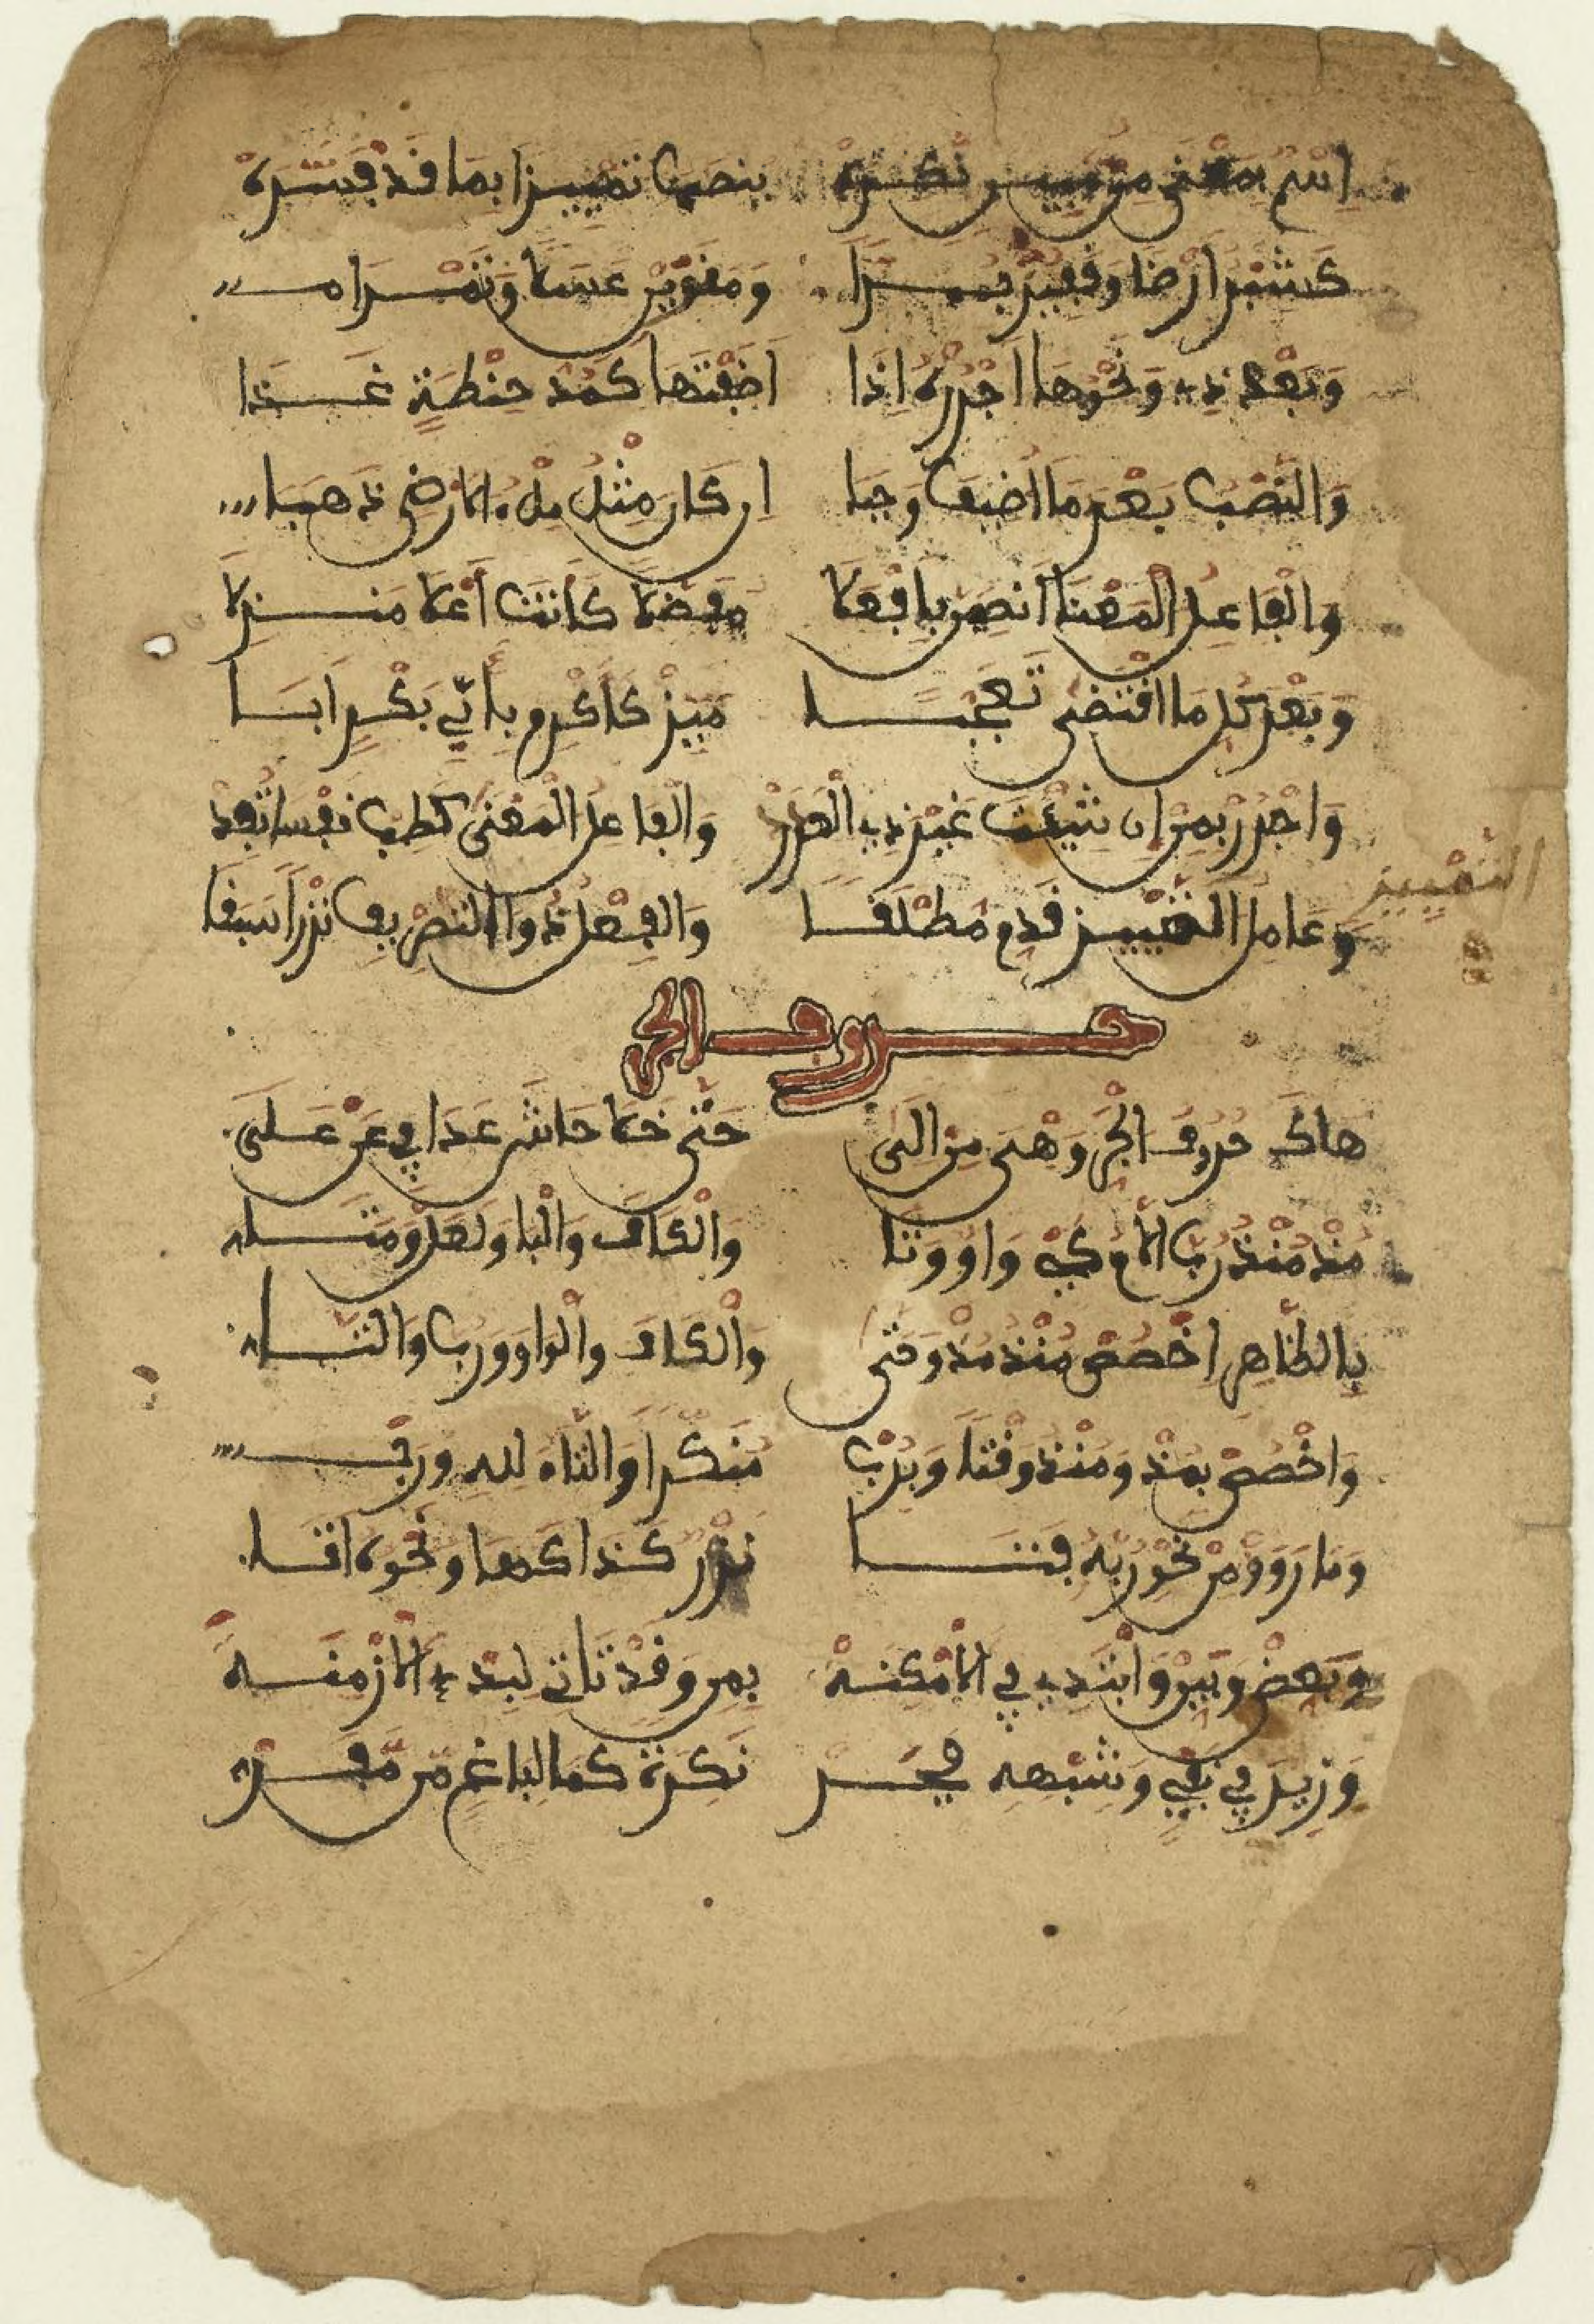 اِسْمٌ بِمَعْنَى مِنْ مُبِينٍ نَكِرَهْ يُنصَبُ تَمْيِيزًا بِمَا قَدْ فَسَّرَهْ
كَشِبْرٍ اَرْضًا وَقَفِيزٍ بُرَّا وَمَنَوَيْنِ عَسَلًا وَتَمْرَا
وَبَعْدَ ذِي وَنَحْوِهَا اجْرُرْهُ اِذَا اَضَفْتَهَا كَمُدُّ حِنْطَةٍ غِذَا
وَالنَّصْبُ بَعْدَ مَا اُضِيفَ وَجَبَا اِن كَانَ مِثْلُ مِلْءُ الاَرْضِ ذَهَبَا
وَالْفَاعِلُ الْمَعْنَا انصِبَنْ بِاَفْعَلَا مُفَضِّلًا كَأَنتَ أَعْلَا مَنزِلَا
وَبَعْدَ كُلِّ مَا اقْتَضَى تَعَجُّبَا مَيِّزْ كَأَكْرِم بِأَبِي بَكْرٍ اَبَا
وَاجْرُرْ بِمِنْ اِن شِئْتَ غَيْرَ ذِي الْعَدَدْ وَالْفَاعِلُ الْمَعْنَى كَطِبْ نَفْسًا تُفَدْ
التَّمْيِيز
وَعَامِلَ التَّمْيِيزِ قَدِّم مُطْلَقَا وَالْفِعْلُ ذُو التَّصْرِيفِ نَزْرًا سُبِقَا
حروف الجر
هَاكَ حُرُوفَ الْجَرِّ وَهْيَ مِنْ اِلَى حَتَّى خَلَا حَاشَى عَدَا فِي عَنْ عَلَى
مُذْ مُنْذُ رُبَّ اللَّامُ كَيْ وَاوٌ وَتَا وَالْكَافُ وَالْبَا وَلَعَلَّ وَمَتَى
بِالظَّاهِرِ اخْصُصْ مُنْذُ مُذْ وَحَتَّى وَالْكَافَ وَالْوَاوَ وَرُبَّ وَالتَّا
وَاخْصُصْ بِمُذْ وَمُنْذُ وَقْتًا وَبِرُبْ مُنَكَّرًا وَالتَّاءُ لِلهِ وَرَبْ
وَمَا رَوَوْا مِنْ نَحْوِ رُبَّهُ فَتَا نَزْرٌ كَذَا كَهَا وَنَحْوُهُ اَتَا
وَبَعِّضْ وَبَيِّنْ وَابْتَدِي فِي الاَمْكِنَهْ بِمِن وَقَدْ تَاتِي لِبَدْءِ الاَزْمِنَهْ
وَزِيدَ فِي نَفْيٍ وَشِبْهِهِ فَجَرْ نَكِرَةً كَمَا لِبَاغٍ مِّن مَّفَرْ